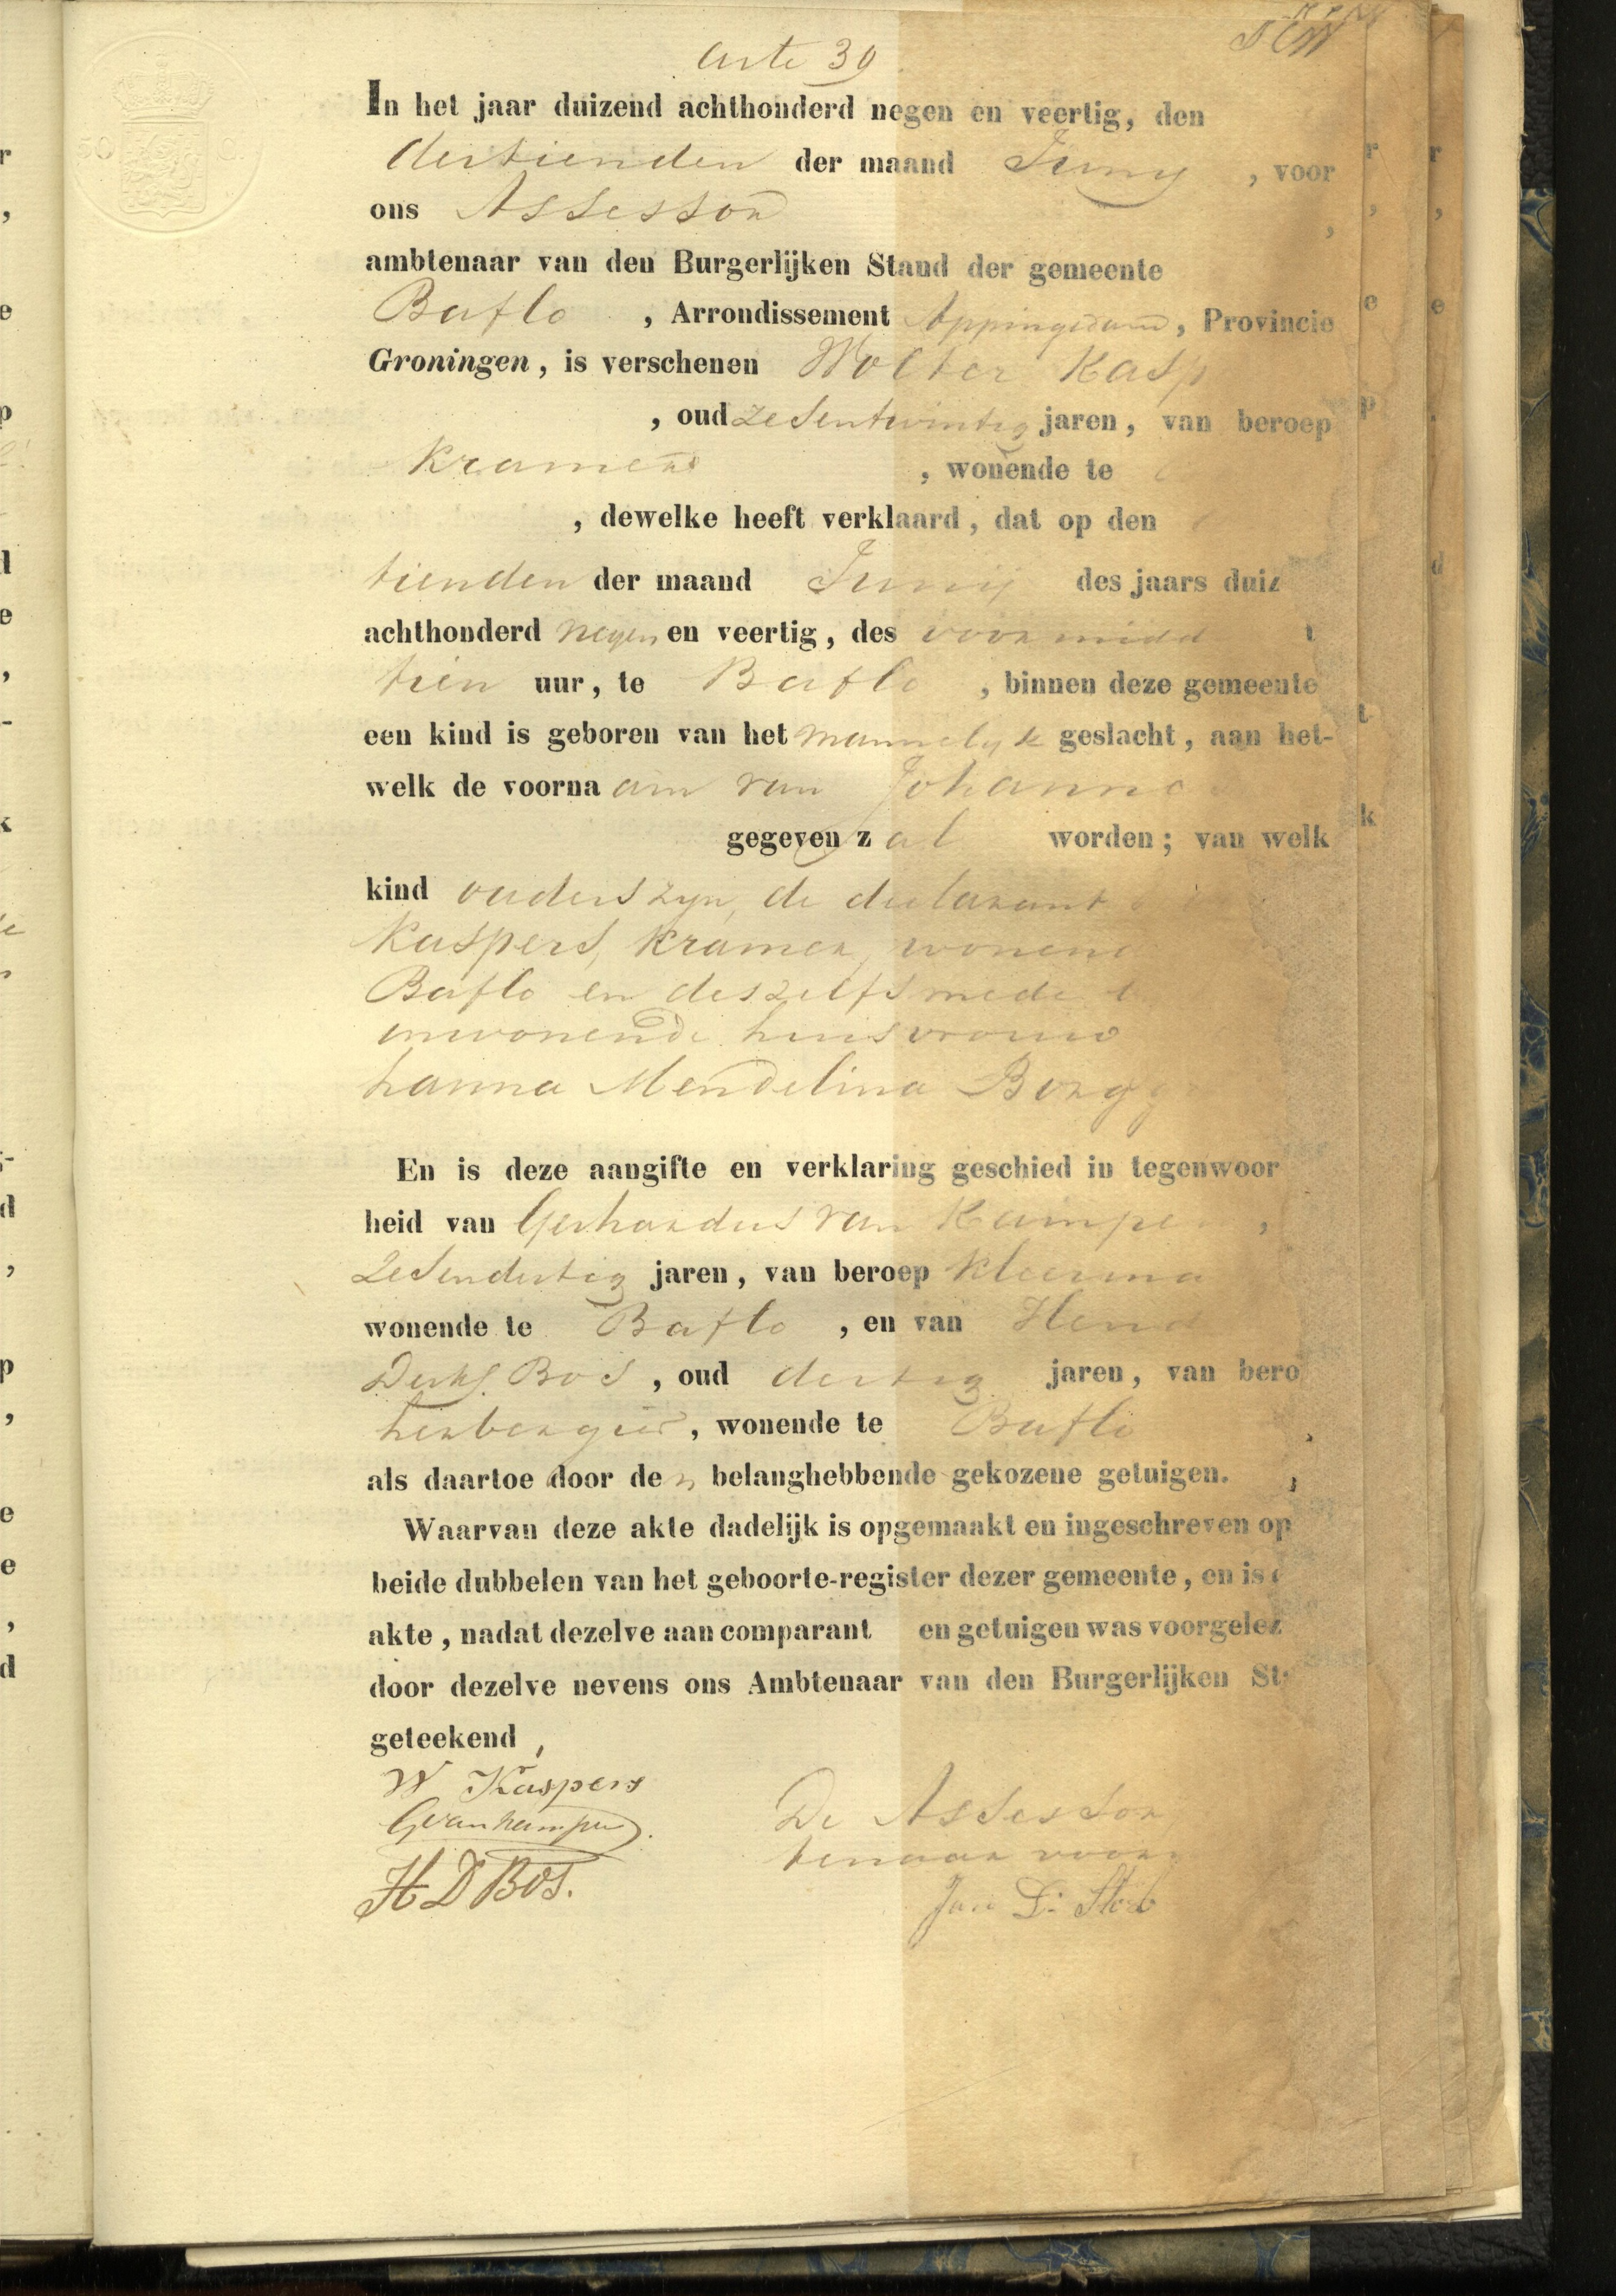 Acte 30
In het jaar duizend achthonderd negen en veertig, den
dertienden der maand Juny , voor
ons Assessor ,
ambtenaar van den Burgerlijken Stand der gemeente
Baflo , Arrondissement Appingedam, Provincie
Groningen, is verschenen Wolter Kasp
, oud zesentwintig jaren, van beroep
Kramer , wonende te
, dewelke heeft verklaard, dat op den
tienden der maand Junij des jaars duiz
achthonderd negen en veertig, des voormidd
tien uur, te Baflo , binnen deze gemeente
een kind is geboren van het mannelyk geslacht, aan het-
welk de voorna am van Johanne
gegeven z al worden; van welk
kind ouders zyn, de declarant
Kaspers, Kramer, wonend
Baflo en deszelfs mede
inwonende huisvrouw
hanna Mendelina Borgg
En is deze aangifte en verklaring geschied in tegenwoor
heid van Gerhardus van Kampen ,
zesendertig jaren, van beroep kleerma
wonende te Baflo , en van Hend
Derks Bos , oud dertig jaren, van bero
herbergier, wonende te Baflo ,
als daartoe door de n belanghebbende gekozene getuigen. ,
Waarvan deze akte dadelijk is opgemaakt en ingeschreven op
beide dubbelen van het geboorte-register dezer gemeente, en is
akte, nadat dezelve aan comparant en getuigen was voorgelez
door dezelve nevens ons Ambtenaar van den Burgerlijken St
geteekend,
W Kaspers
G van Kampen.
H D Bos.
De Assessor
tenaar voor
Jan L: